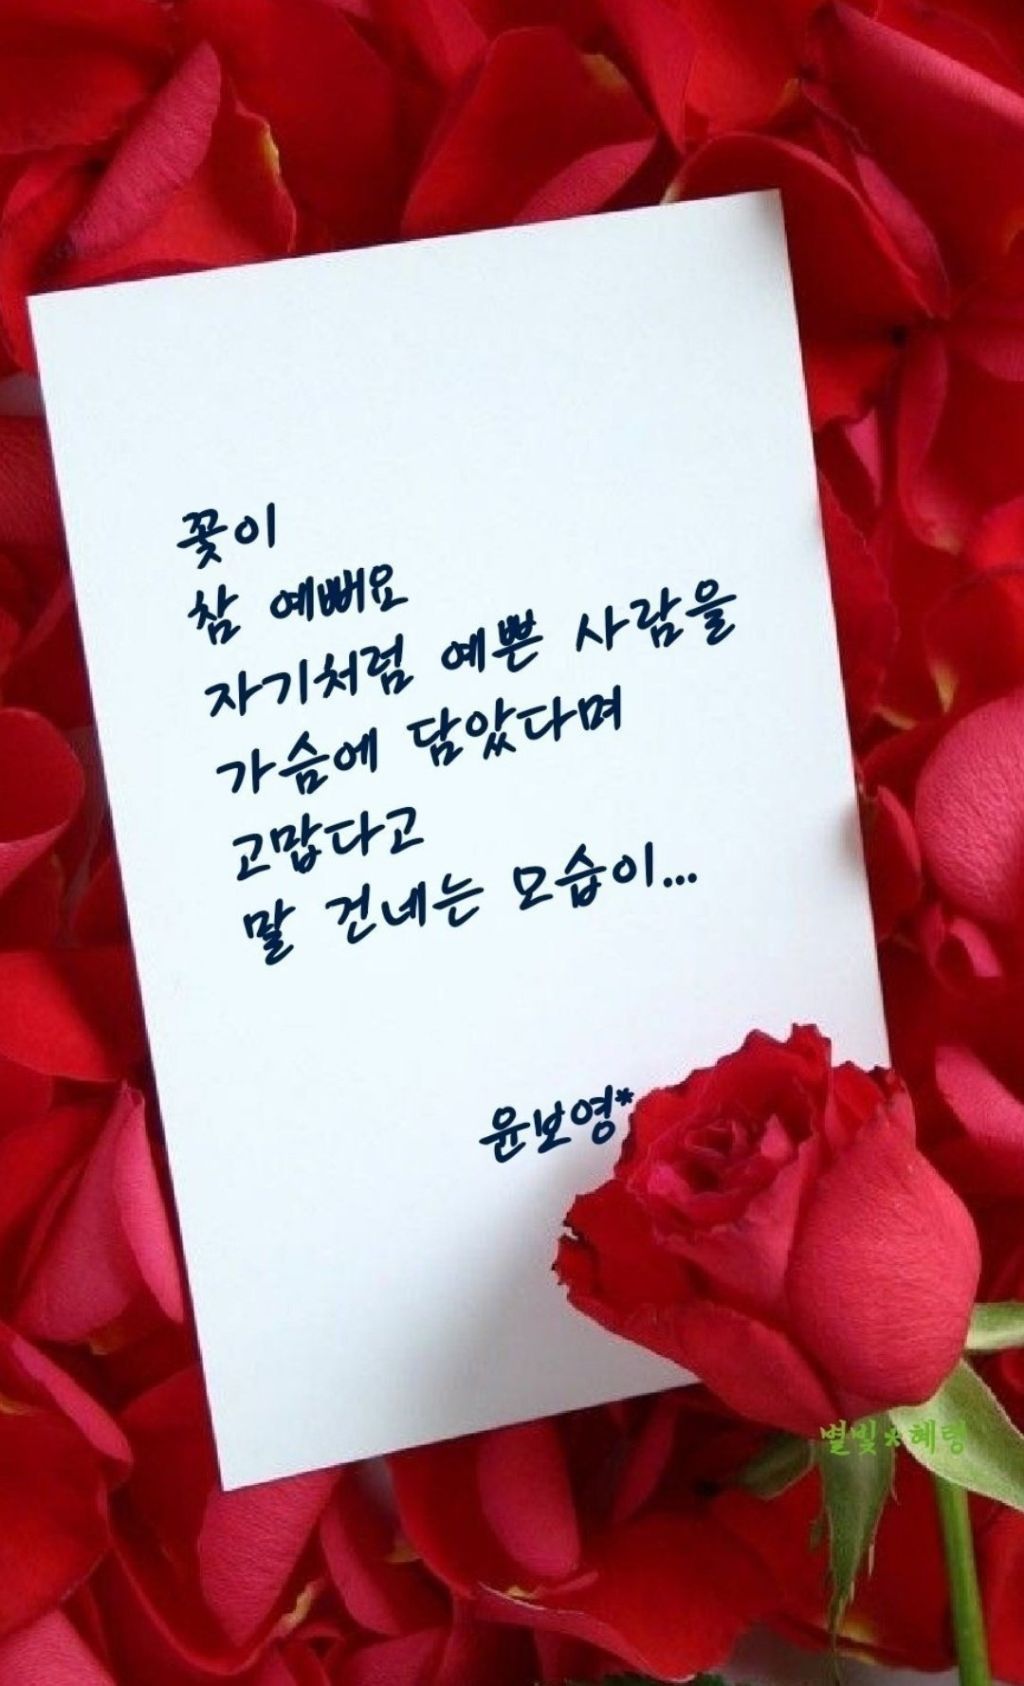 꽃이
참 예뻐요
자기처럼 예쁜 사람을
가슴에 담았다며
고맙다고
말 건네는 모습이...
윤보영*
별빛*혜령